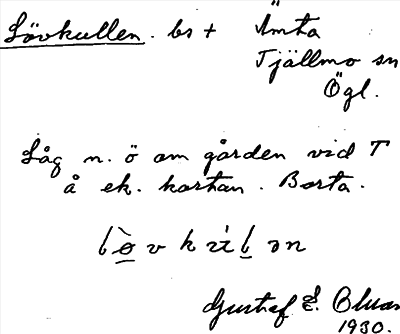 Lövkullen. bs +
Ämta
Tjällmo sn
Ögl.
Låg n. ö om gården vid T
å ek. kartan. Borta.
Gustaf E. Bluas
1930.